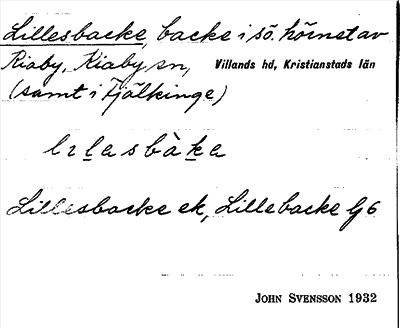 Lillesbacke, backe i sö. hörnet av
Kiaby, Kiaby sn, Villands hd, Kristianstads län
(samt i Fjälkinge)
lɩlasbàka
Lillesbacke ek, Lillebacke G6
JOHN SVENSSON 1932